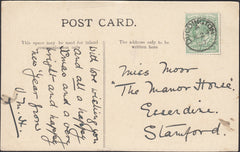 POST CARD.
This space may be used for inland
The address only to be
written here
With love wishing you
and all a happy
Xmas and a very
bright and happy
New Year from
Miss Moor
"The Manor House"
Essendine
Stamford